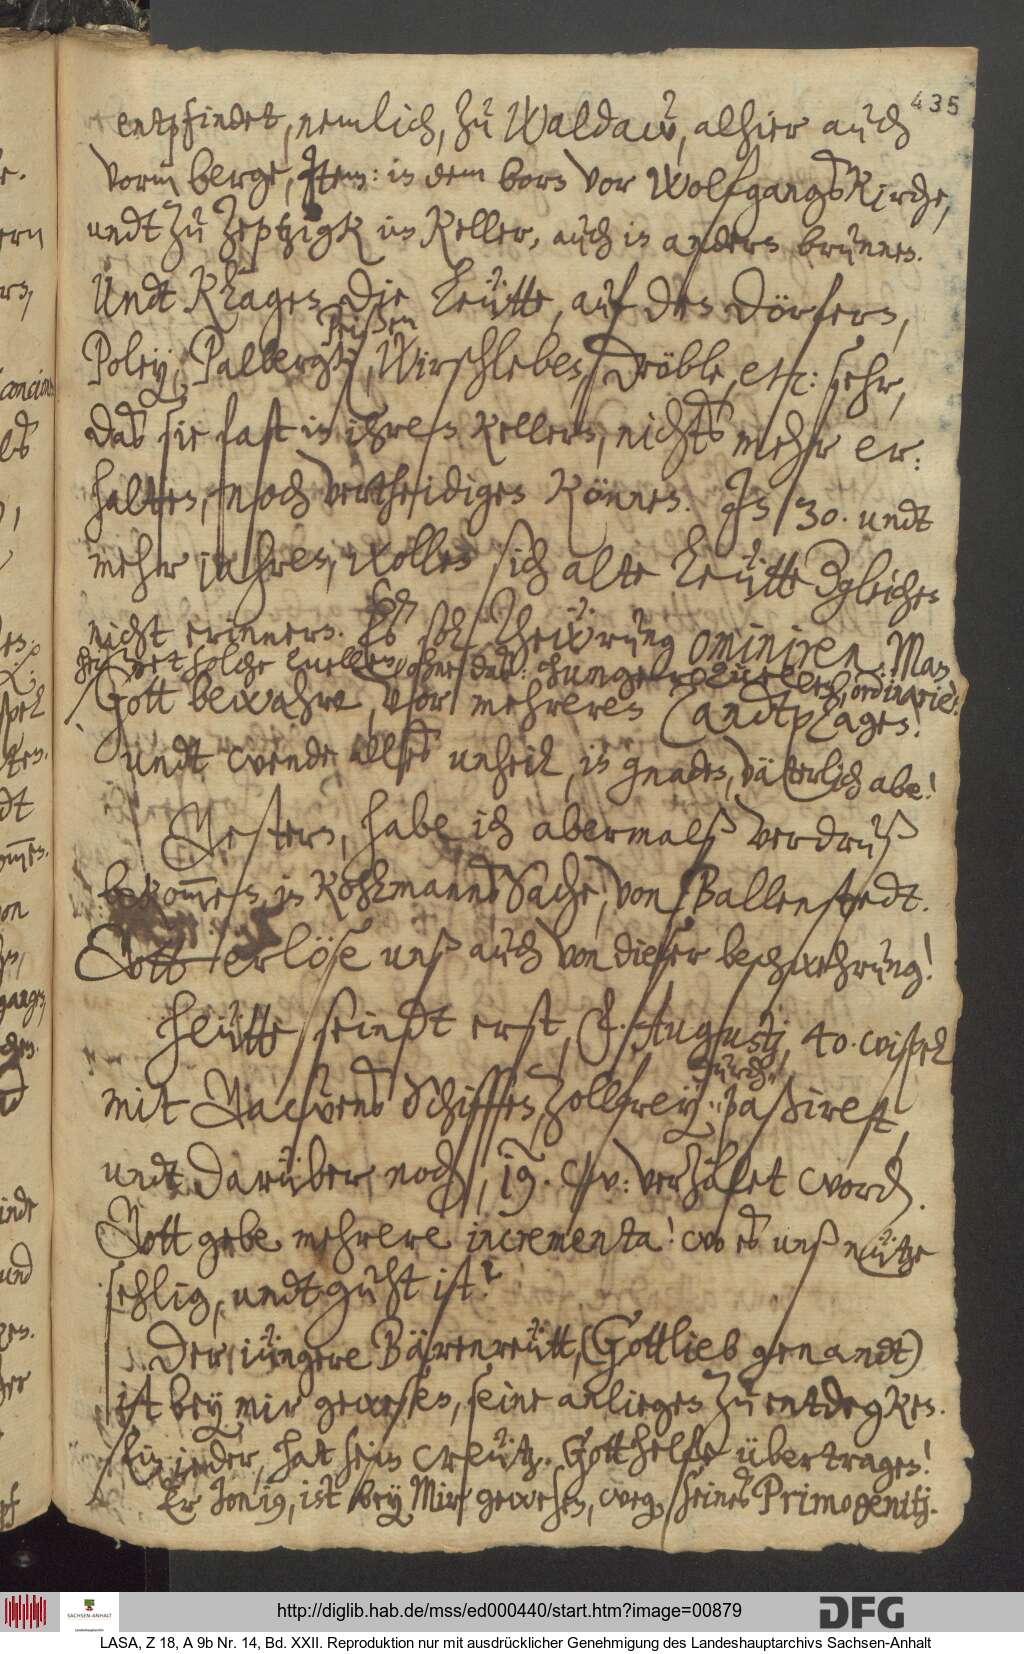 435
entpfindet, nemlich, zu Waldaw, alhier auch
vorm berge, Item: in dem born vor Wolfgangs Kirche,
undt zu Zeptzigk im Keller, auch in andern brunnen.
Undt Klagen die Leütte, auf den Dörfern,
Peißen
Poley, Palberg, Wirschleben, Dröble, etc: sehr,
das sie fast in ihren Kellern, nichts mehr er:
halten, noch vertheidigen Können. In 30. undt
mehr iahren, wollen sich alte Leütte dergleichen
nicht erinnern. Es soll Thewrung ominiren. Man
heißet solche quellen, hungerquellen, ordinarie.
Gott bewahre, vor mehreren Landtplagen!
undt wende alles unheil, in gnaden, väterlich abe!
Gestern, habe ich abermalß verdruß
bekommen, in Kohlmanns Sache, von Ballenstedt.
Gott erlöse unß auch von dieser beschwehrung!
Heütte seindt erst, Augustj, 40. wispel
durch,
mit Schiffen, Zollfrey, paßiret,
undt darüber noch, 19. w: verhäret word.
Gott gebe mehrere incrementa! wo es unß nütze
sehlig, undt guht ist?
Der iüngere Bärenreütt, (Gottlieb genandt)
ist bey mir gewesen, seine anliegen zu entdegken.
Ein ieder, hat sein Creütz. Gott helfe übertragen!
Er Jonius, ist bey Mir gewesen, weg. seines Primogenitj.
http://diglib.hab.de/mss/ed000440/start.htm?image=00879
DFG
SACHSEN-ANHALT
LASA, Z 18, A 9b Nr. 14, Bd. XXII. Reproduktion nur mit ausdrücklicher Genehmigung des Landeshauptarchivs Sachsen-Anhalt